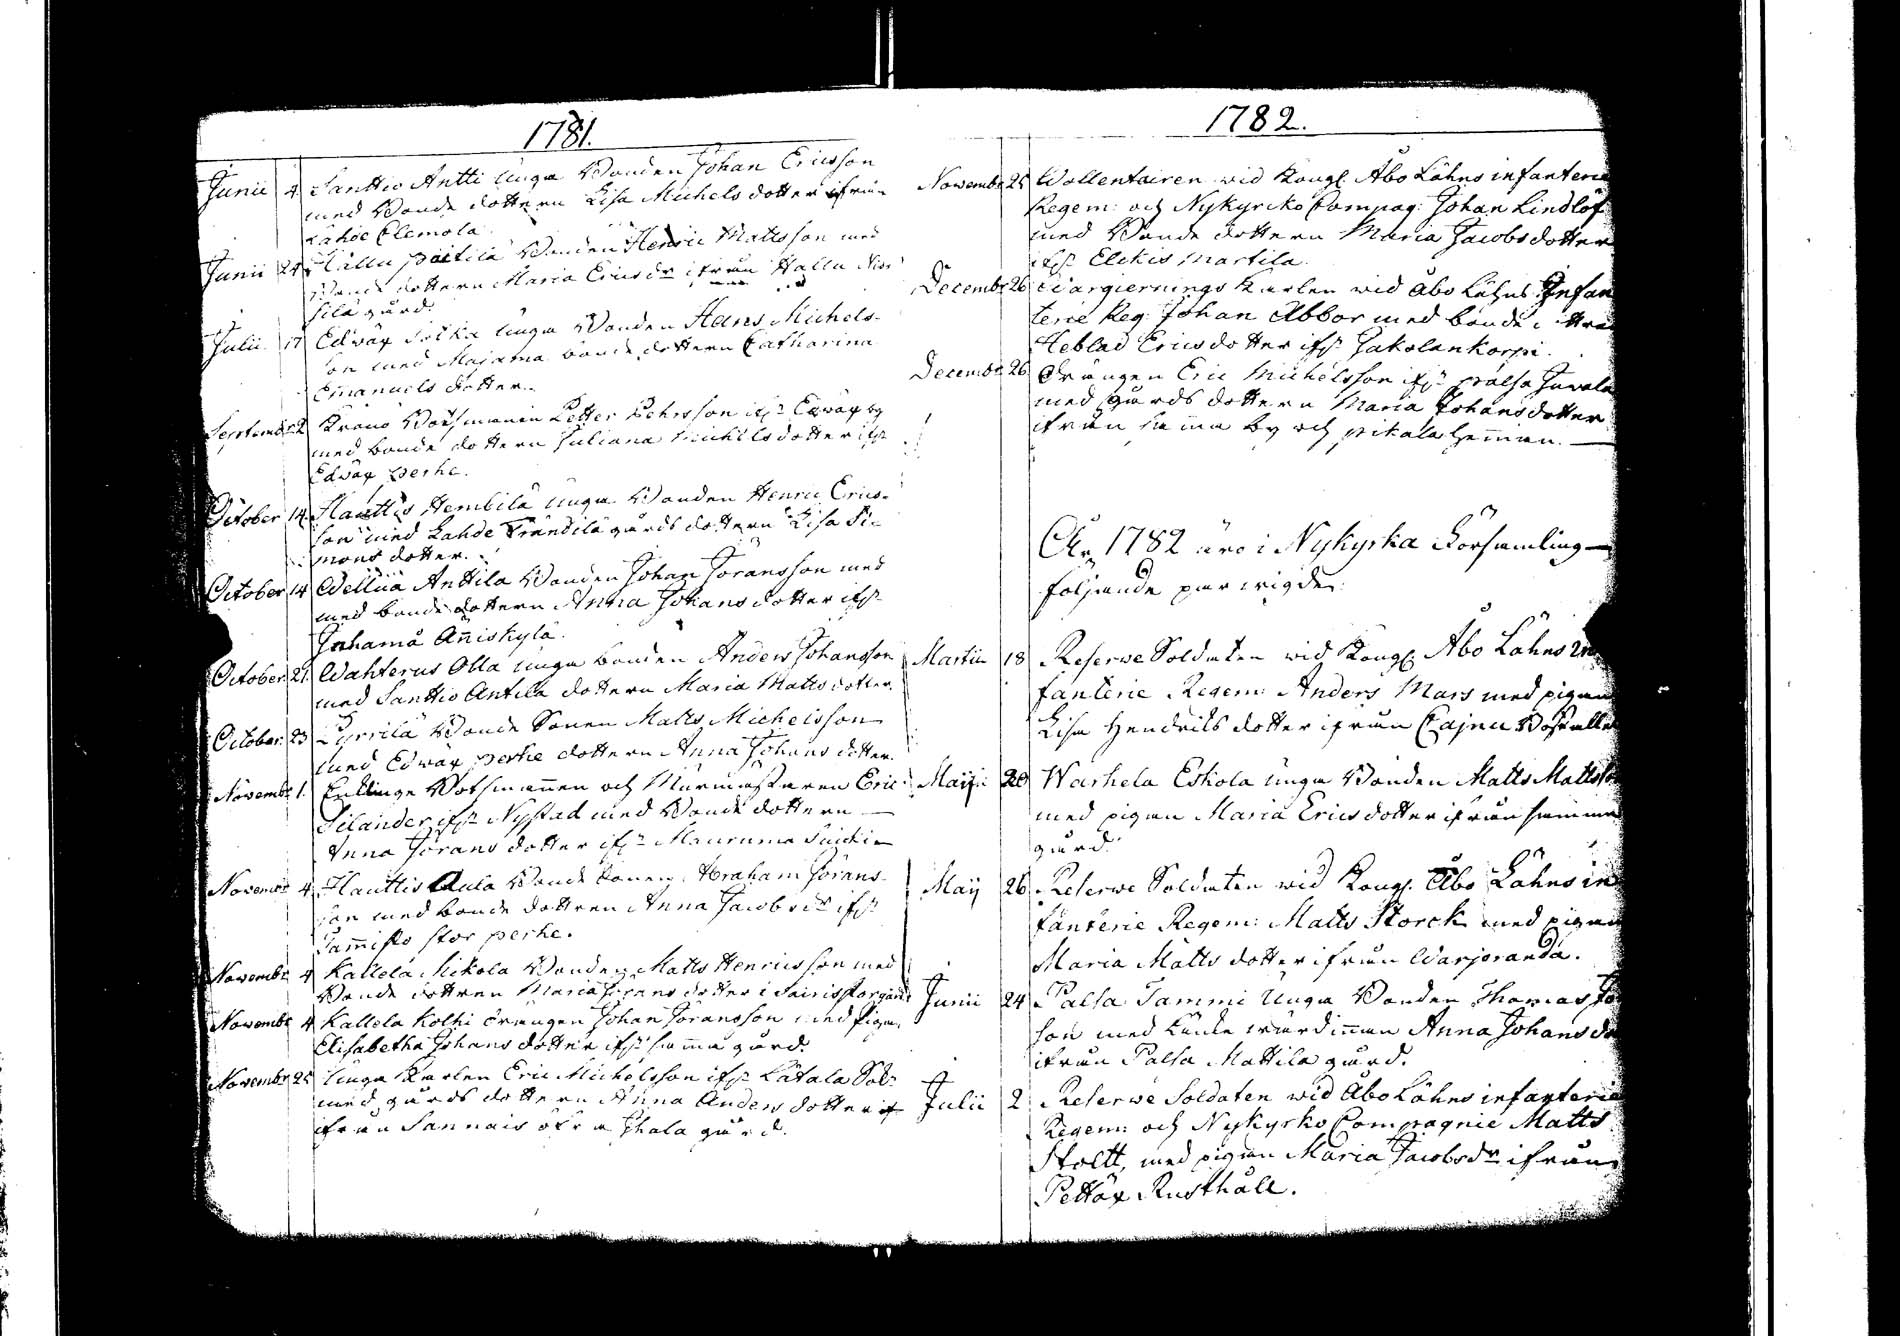 1781.
Junii 4. Santtio Antti unga Bonden Johan Ericsson
med Bonde dottern Lisa Michels dotter ifrån
Lahde Clemola.
Junii 24. Hallu Bonden Henric Mattsson med
Bonde dottern Maria Ericsdr ifrån Hallu
gård.
Julii 17 Edwäx unga Bonden Hans Michels-
son med bonde dottern Catharina
Emanuels dotter.
Septembr 2 Båtsmannen Petter ifr Edwäx by
med bonde dottern Juliana Michelsdotter ifr
Edwäx perhe.
October 14. Hauttis Hembilä unga Bonden Henric Erics-
son med Lahde gårds dottern Lisa Si-
mons dotter.
October 14 Wellua Anttila Bonden Johan Jöransson med
med bonde dottern Anna Johans dotter ifr
Annis kylä.
October 21. Wahterus Olla unga bonden Anders Johansson
med Santtio Antila dottern Maria Matts dotter.
October 23 Pyrrilä Bonde Sonen Matts Michelsson
med Edwäx perhe dottern Anna Johans dotter.
Novembr 1. Båtsmannen och Murmästaren Eric
Silander ifr Nystad med Bonde dottern
Anna Jörans dotter ifr Maurumaa
Novembr 4 Hauttis Aula Bonde Sonen Abraham Jörans-
son med bonde dottren Anna Jacobsdr ifr
Tammisto stor perhe.
Novembr 4 Kallela Mikola Bonden Matts Henricsson med
Bonde dottren Maria Jörans dotter i
Novembr 4 Kallela Kolhi drängen Johan Jöransson med Pigan
Elisabetha Johans dotter ifr samma gård.
Novembr 25 Unga Karlen Eric Michelsson ifr Lätala
med gårds dottern Anna Anders dotter
ifrån Sannais gård.
1782.
Novembr 25 Wollentairen wid Kongl Åbo Lähns infanterie
Regem: och Nykyrcko Compag: Johan Lindlöf
med Bonde dottern Maria Jacobsdotter
ifr Elckis Martila.
Decembr 26 Wargiernings Karlen wid Åbo Lähns Infan
terie Reg Johan Abbor med bonde dottren
Heblad Ericsdotter ifr Jakolankorpi.
Decembr 26 drängen Eric Michelsson ifr Palsa
med gårds dottern Maria Johansdotter
ifrån samma by och Pikala hemman.
År 1782 äro i Nykyrka Församling
följande par wigde:
Martii 18 Reserwe Soldaten wid Kongl Åbo Lähns In
fanterie Regem: Anders Mars med pigan
Lisa Hendrils dotter ifrån Cajnu Bostället
Maji 20 Warhela Eskola unga Bonden Matts Mattsson
med pigan Maria Ericsdotter ifrån samma
gård.
Maij 26 Reserwe Soldaten wid Kongl. Åbo Lähns in
fanterie Regem: Matts Storck med pigan
Maria Matts dotter ifrån Warjoranda.
Junii 24 Palsa Tammi Unga Bonden Thomas Jo
son med Anna Johans dr
ifrån Palsa Mattila gård.
Julii 2 Reserwe Soldaten wid Åbo Lähns infanterie
Regem: och Nykyrko Compagnie Matts
Stoltt, med pigan Maria Jacobsdr ifrån
Pettäx Rusthåll.